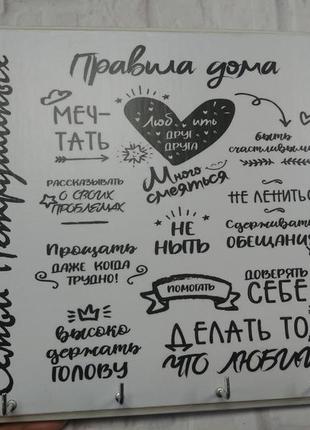 Правила дома
Семьи
МЕЧ-
ТАТЬ
Люб ить
ДРУГ
ДРУГА
быть
счастливыми
Много
смеяться
РАССКАЗЫВАТЬ
О СВОИХ
ПРОБЛЕМАХ
НЕ
НЫТЬ
НЕ ЛЕНИТЬС
Сдерживать
ОБЕЩАНИ
Прощать
ДАЖЕ КОГДА
ТРУДНО!
ПОМОГАТЬ
ДОВЕРЯТЬ
СЕБЕ
высоко
держать
ГОЛОВУ
ДЕЛАТЬ ТО,
ЧТО ЛЮБИ